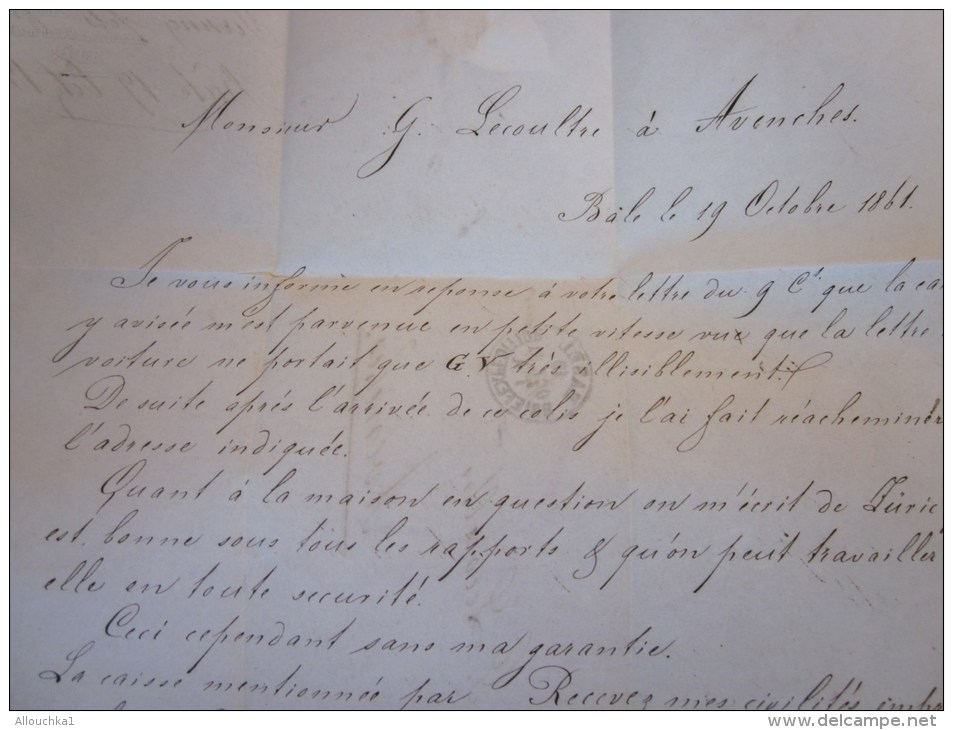 Monsieur G. Lecoultre à Avenches.
Bâle le 19 Octobre 1861.
Je vous informe en reponse à votre lettre du 9 Ct que la cai
y avisée m'est parvenue en petite vitesse vue que la lettre
voiture ne portait que G.V très illisiblement.
De suite aprés l'arrivée de ce colis je l'ai fait réacheminér
l'adresse indiquée.
Quant à la maison en question on m'écrit de Züric
est bonne sous tous les rapports & qu'on peut travailler
elle en toute securité.
Ceci cependant sans ma garantie.
La caisse mentionnée par Recevez mes civilités
Allouchka1
www.delcampe.net